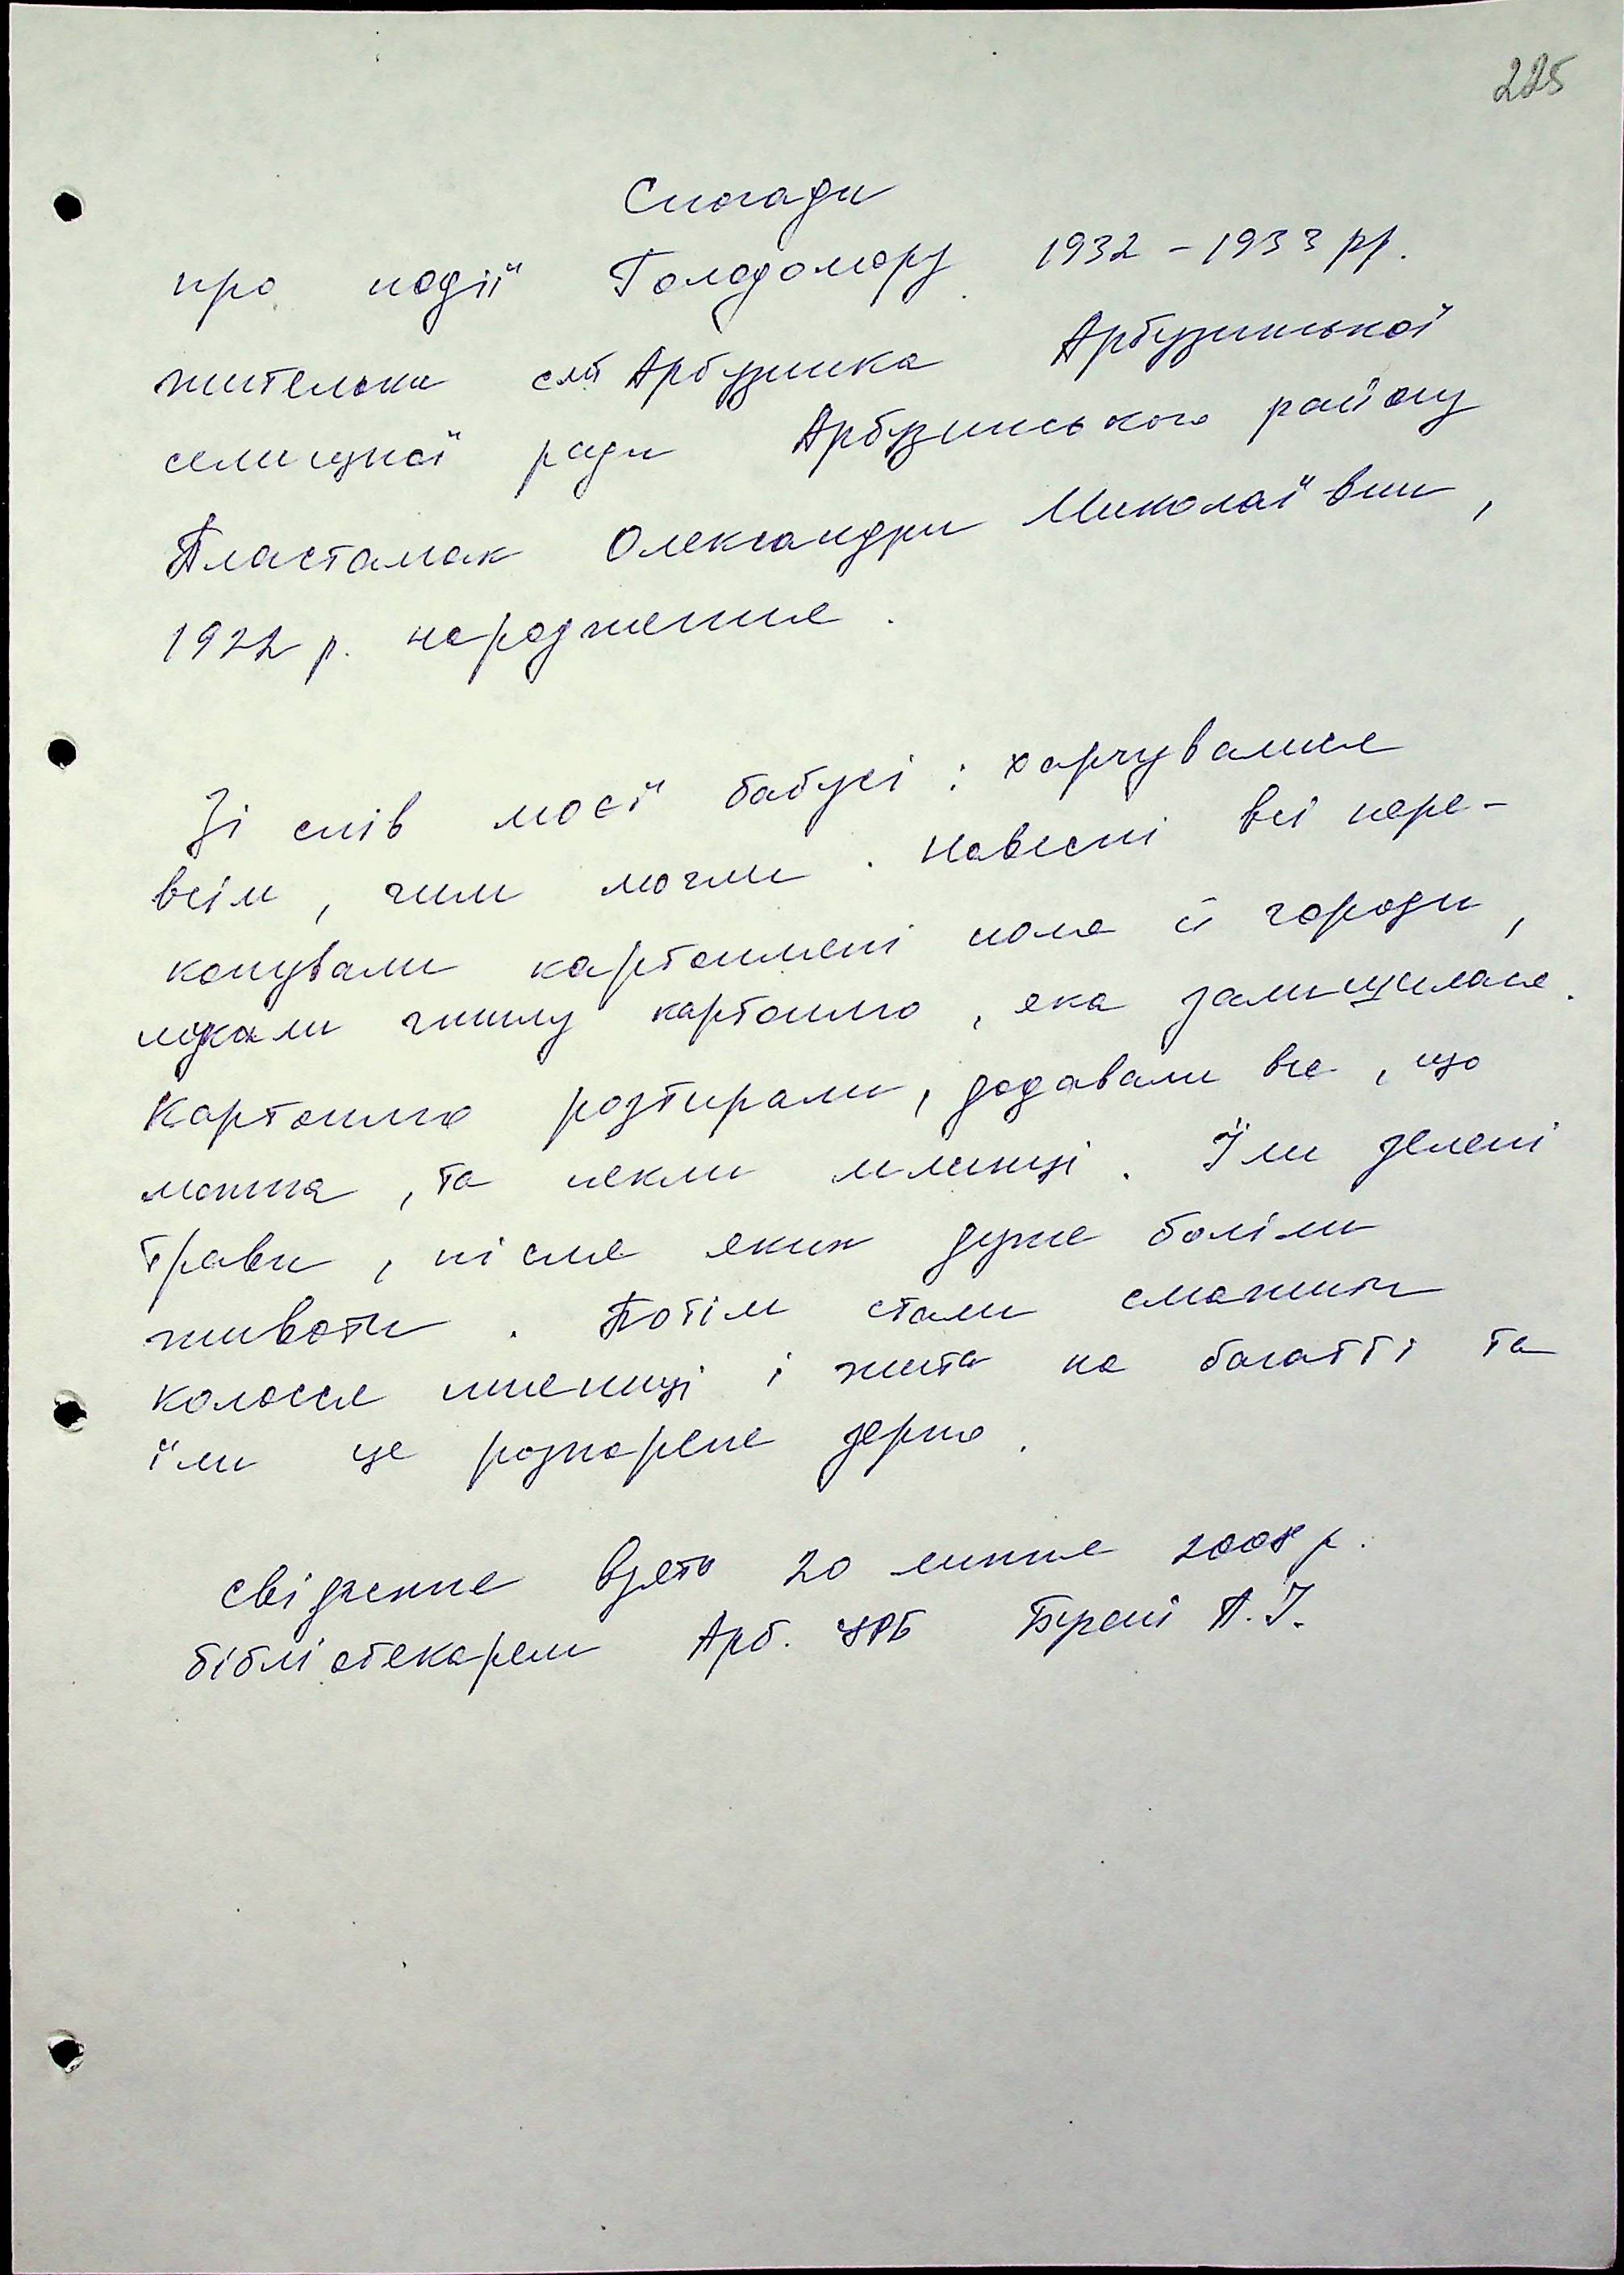 225
Спогади
про події Голодомору 1932 - 1933 рр.
жительки смт Арбузинка Арбузинської
селищної ради Арбузинського району
Пластамак Олександри Миколаївни,
1922 р. народження.
Зі слів моєї бабусі: харчувалися
всім, чим могли. Навесні всі пере-
копували картопляні поля й городи,
шукали гнилу картоплю, яка залишилася.
Картоплю розтирали, додавали все, що
можна, та пекли млинці. Їли зелені
трави, після яких дуже боліли
животи. Потім стали смажити
колосся пшениці і жита на багатті та
їли це розпарене зерно.
Свідчення взято 20 липня 2008 р.
бібліотекарем Арб. ЦРБ А.І.